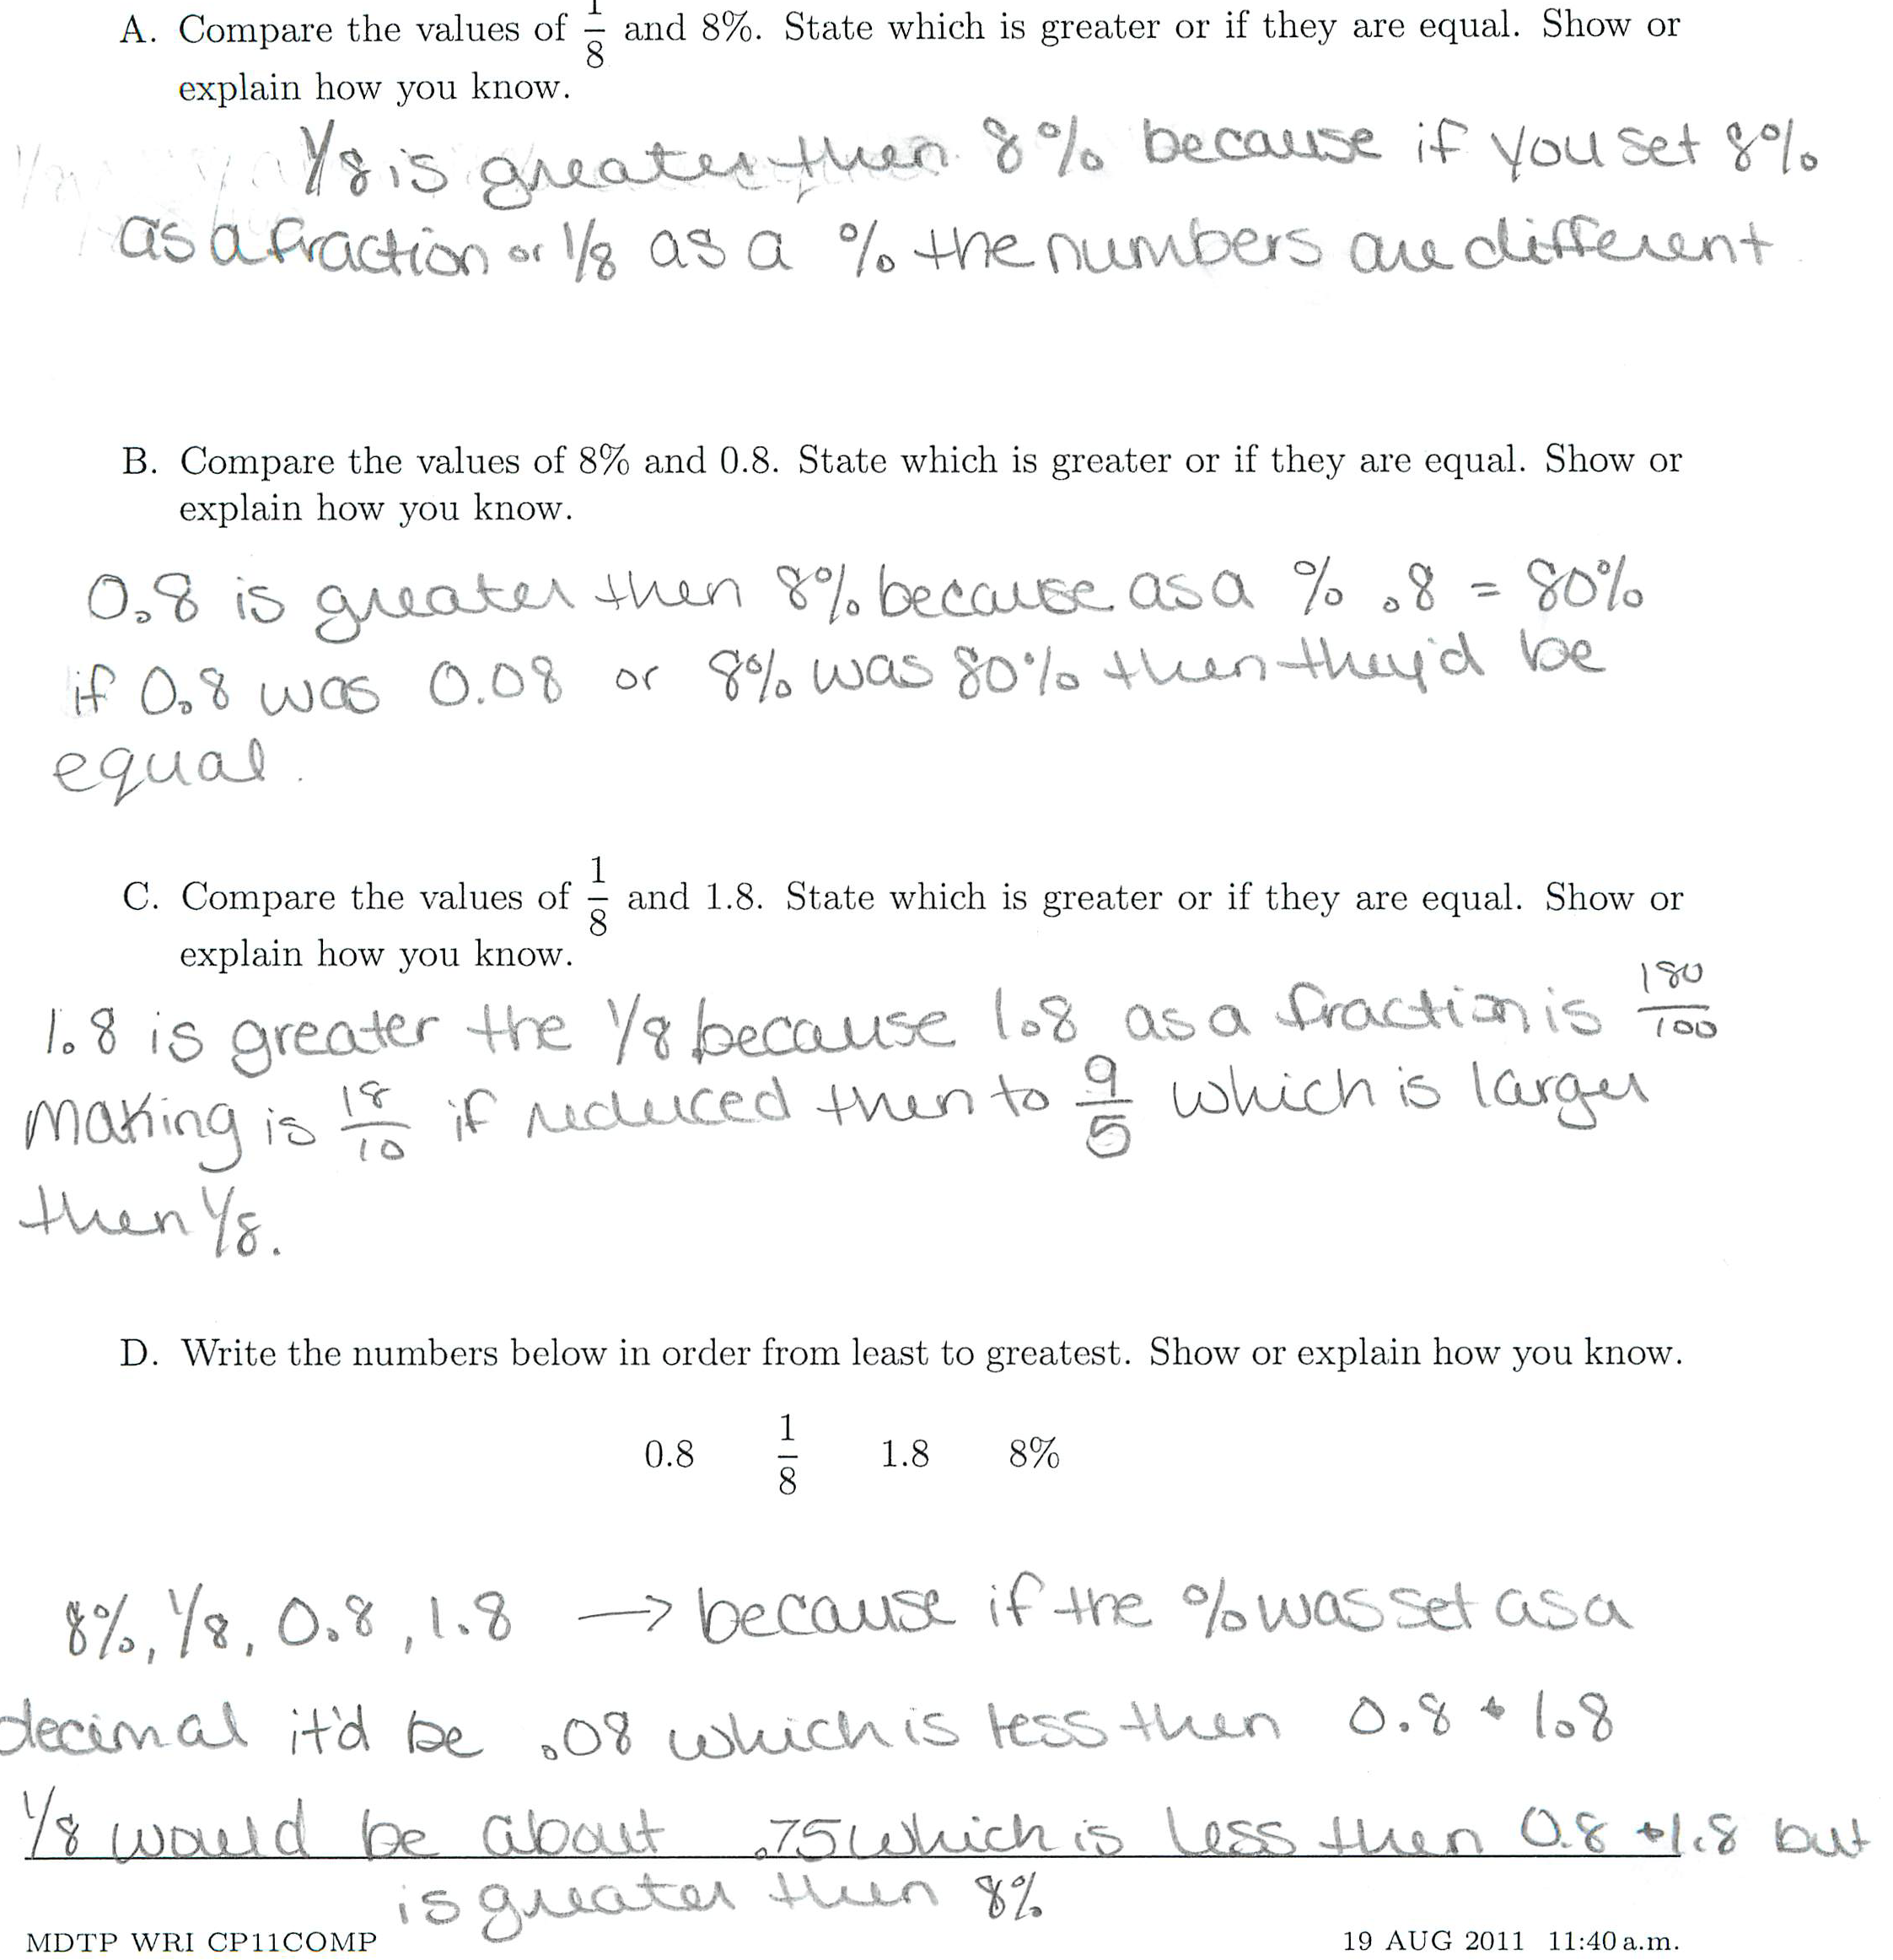 A. Compare the values of 1/8 and 8%. State which is greater or if they are equal. Show or
explain how you know.
1/8 is greater then 8% because if you set 8%
as a fraction or 1/8 as a % the numbers are different
B. Compare the values of 8% and 0.8. State which is greater or if they are equal. Show or
explain how you know.
0.8 is greater then 8% because as a % .8 = 80%
if 0.8 was 0.08 or 8% was 80% then they'd be
equal.
C. Compare the values of 1/8 and 1.8. State which is greater or if they are equal. Show or
explain how you know.
1.8 is greater the 1/8 because 1.8 as a fraction is 180/100
making is 18/10 if reduced then to 9/5 which is larger
then 1/8.
D. Write the numbers below in order from least to greatest. Show or explain how you know.
0.8 1/8 1.8 8%
8%, 1/8, 0.8, 1.8 → because if the % was set as a
decimal it'd be .08 which is less then 0.8 + 1.8
1/8 would be about .75 which is less then 0.8 + 1.8 but
is greater then 8%
MDTP WRI CP11COMP 19 AUG 2011 11:40 a.m.